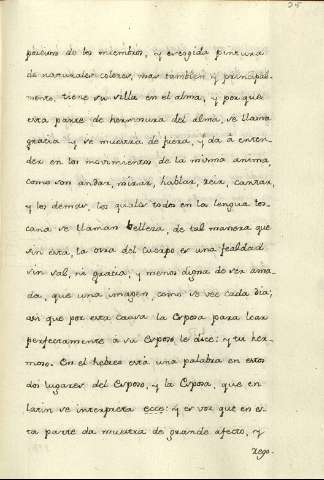 25
porcion de los miembros, y escogida pintura
de naturales colores, mas tambien y principal-
mente, tiene su silla en el alma, y por que
esta parte de hermosura del alma, se llama
gracia y se muestra de fuera, y da á enten-
der en los movimientos de la misma anima,
como son andar, mirar, hablar, reir, cantar,
y los demas, los quales todos en la lengua tos-
cana se llaman belleza, de tal manera que
sin esta, la otra del cuerpo es una fealdad
sin sal, ni gracia, y menos digna de ser ama-
da, que una imagen, como se vee cada dia;
asi que por esta causa la Esposa para loar
perfectamente á su Esposo, le dice: y tu her-
moso. En el hebreo está una palabra en estos
dos lugares del Esposo, y la Esposa, que en
latin se interpreta ecce: y es voz que en es-
ta parte da muestra de grande afecto, y
rego-